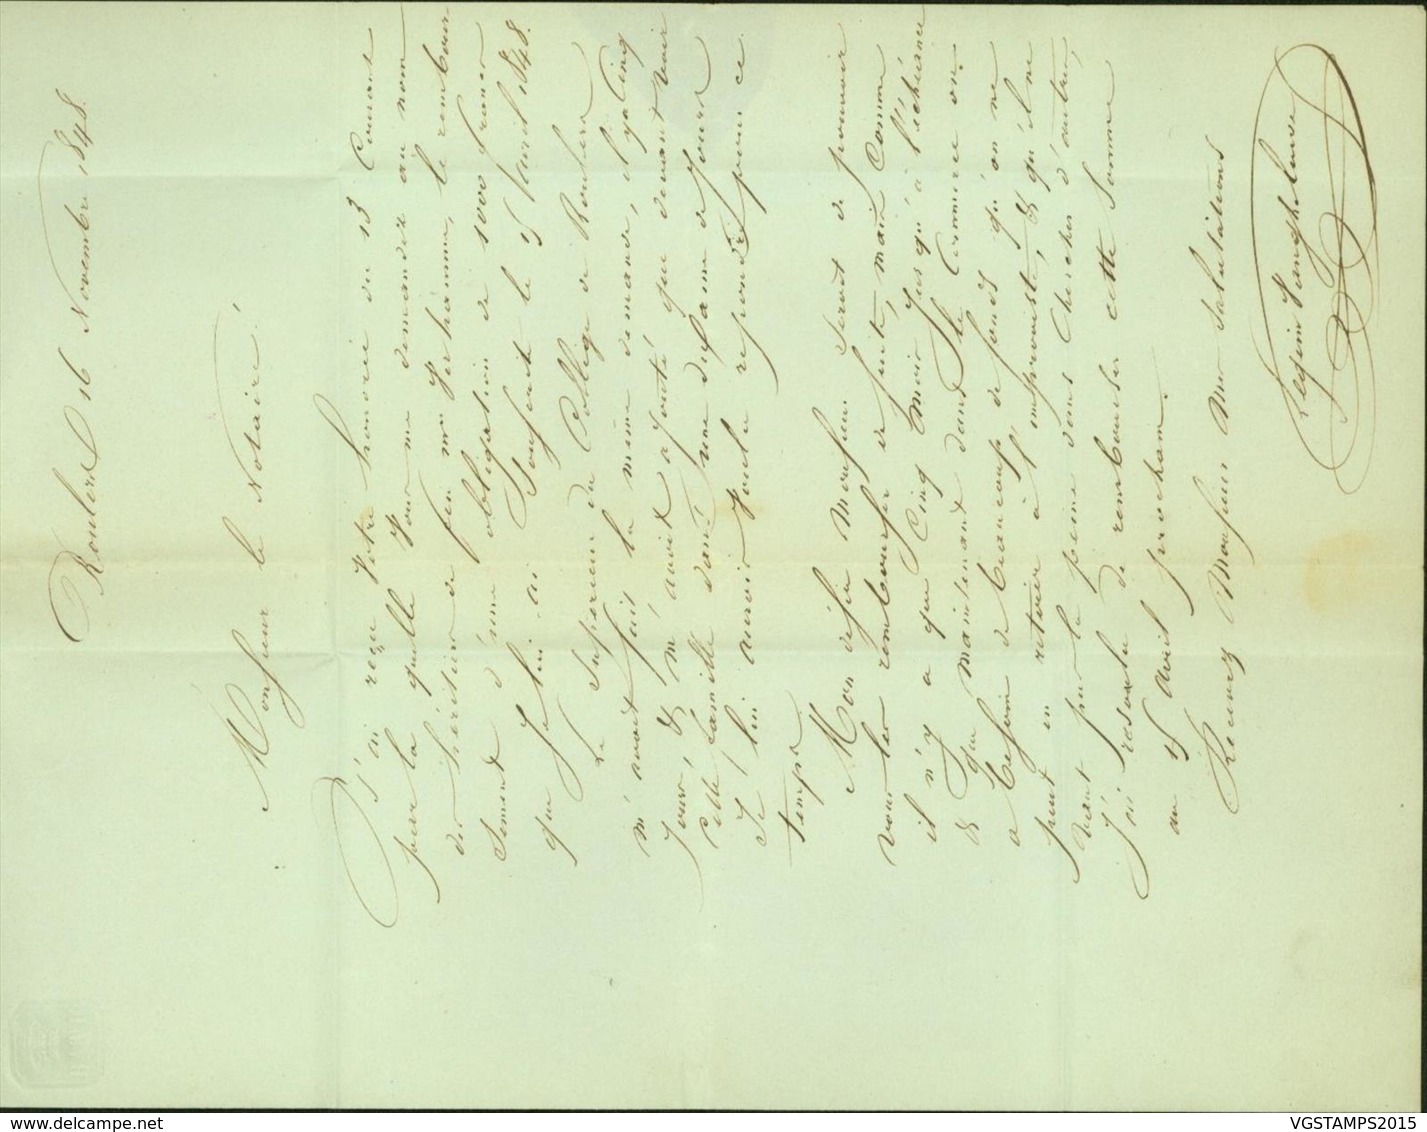 Roulers 16 Novembre 1848.
Monsieur le Notaire!
J'ai reçu Votre honorée du 13 Courant
par la quelle Vous me demandez au nom
des héritiers de feu mr Verhamme, le rembour
sement d'une obligation de 1000 francs
que je lui ai Souscrit le 15 avril 1848.
Le Superieur du College de Roulers
m'avait fait la même demande, il y a cinq
jours, & m'avait ajouté que devant voir
cette famille dans une dixaine de Jours
Je lui aurais Voulu repondre pour ce
temps.
Mon désir Monsieur Serait de pouvoir
vous les rembourser de suite, mais Comme
il n'y a que Cinq mois Jusqu'à l'écheance
& que maintenant dans le Commerce on
a besoin de beaucoup de fonds qu'on ne
peut en retirer à l'improviste, & qu'il ne
vaut pas la peine d'en Chercher d'autres,
J'ai resolu de rembourser cette Somme
au 15 avril prochain.
Recevez Monsieur Mes Salutations